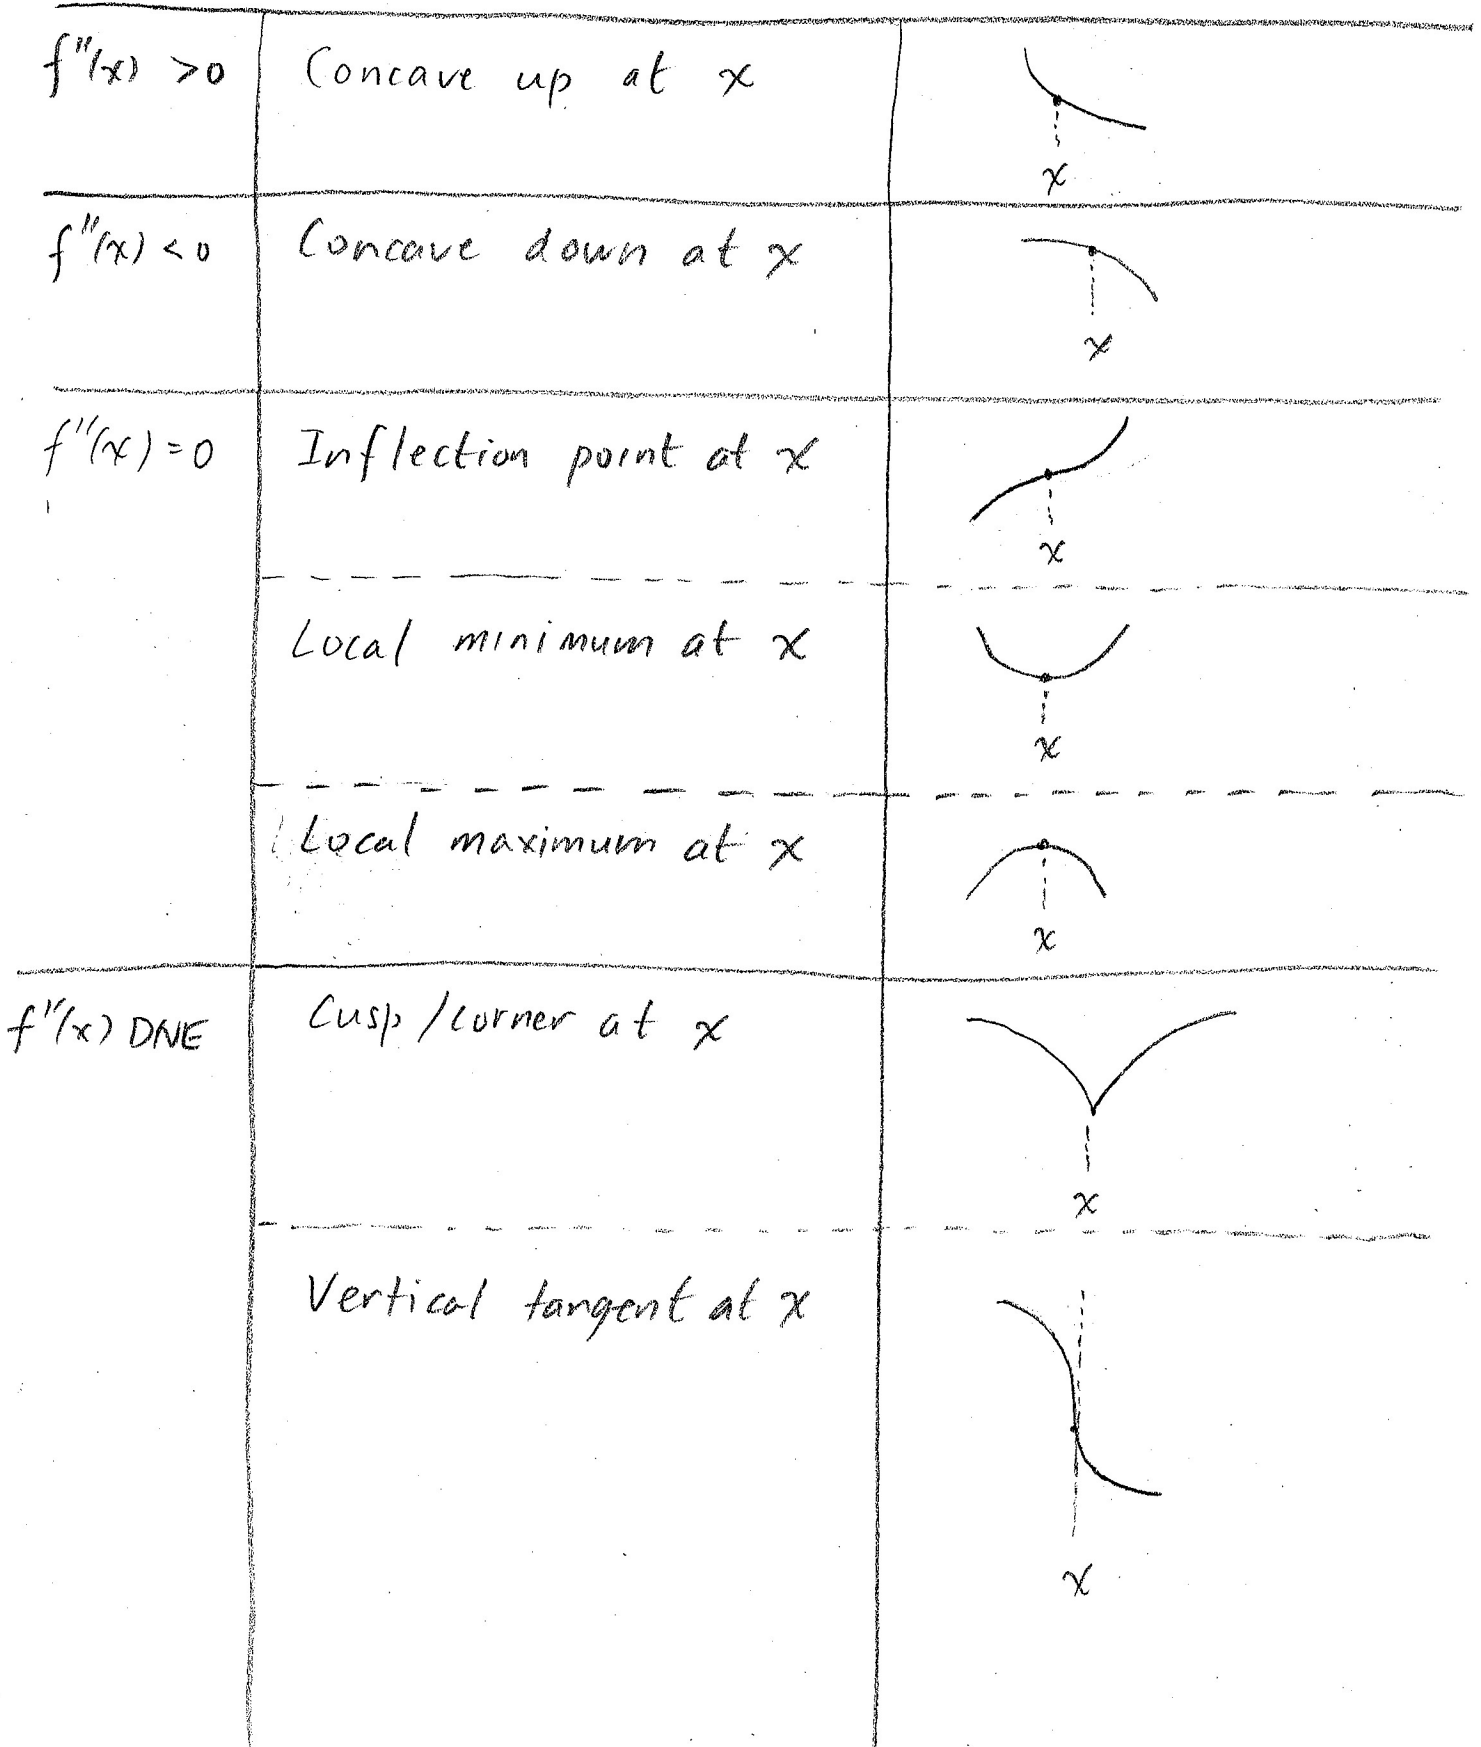 f''(x) >0 Concave up at x
x
f''(x) <0 Concave down at x
x
f''(x) =0 Inflection point at x
x
Local minimum at x
x
Local maximum at x
x
f''(x) DNE Cusp/corner at x
x
Vertical tangent at x
x